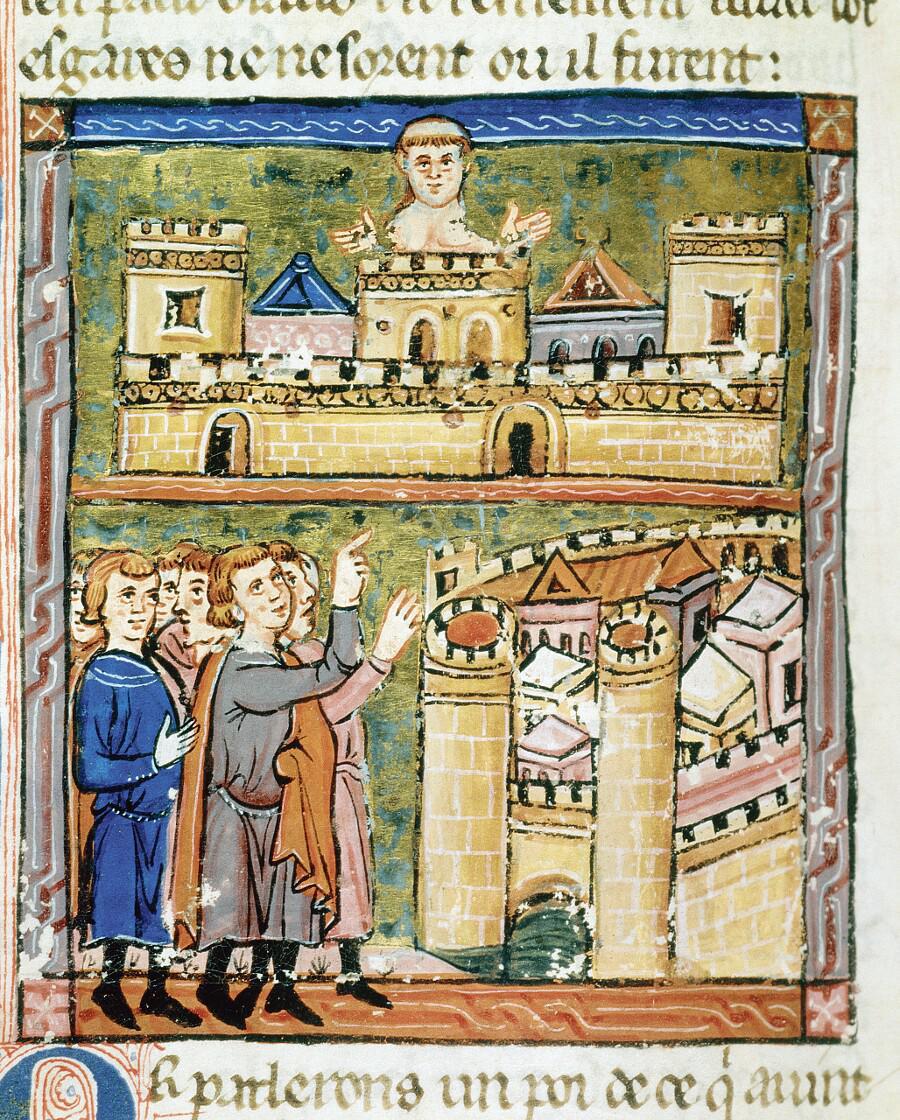 esgares ne ne sorent ou il furent:
Or parlerons un poi de ce q̇ auint